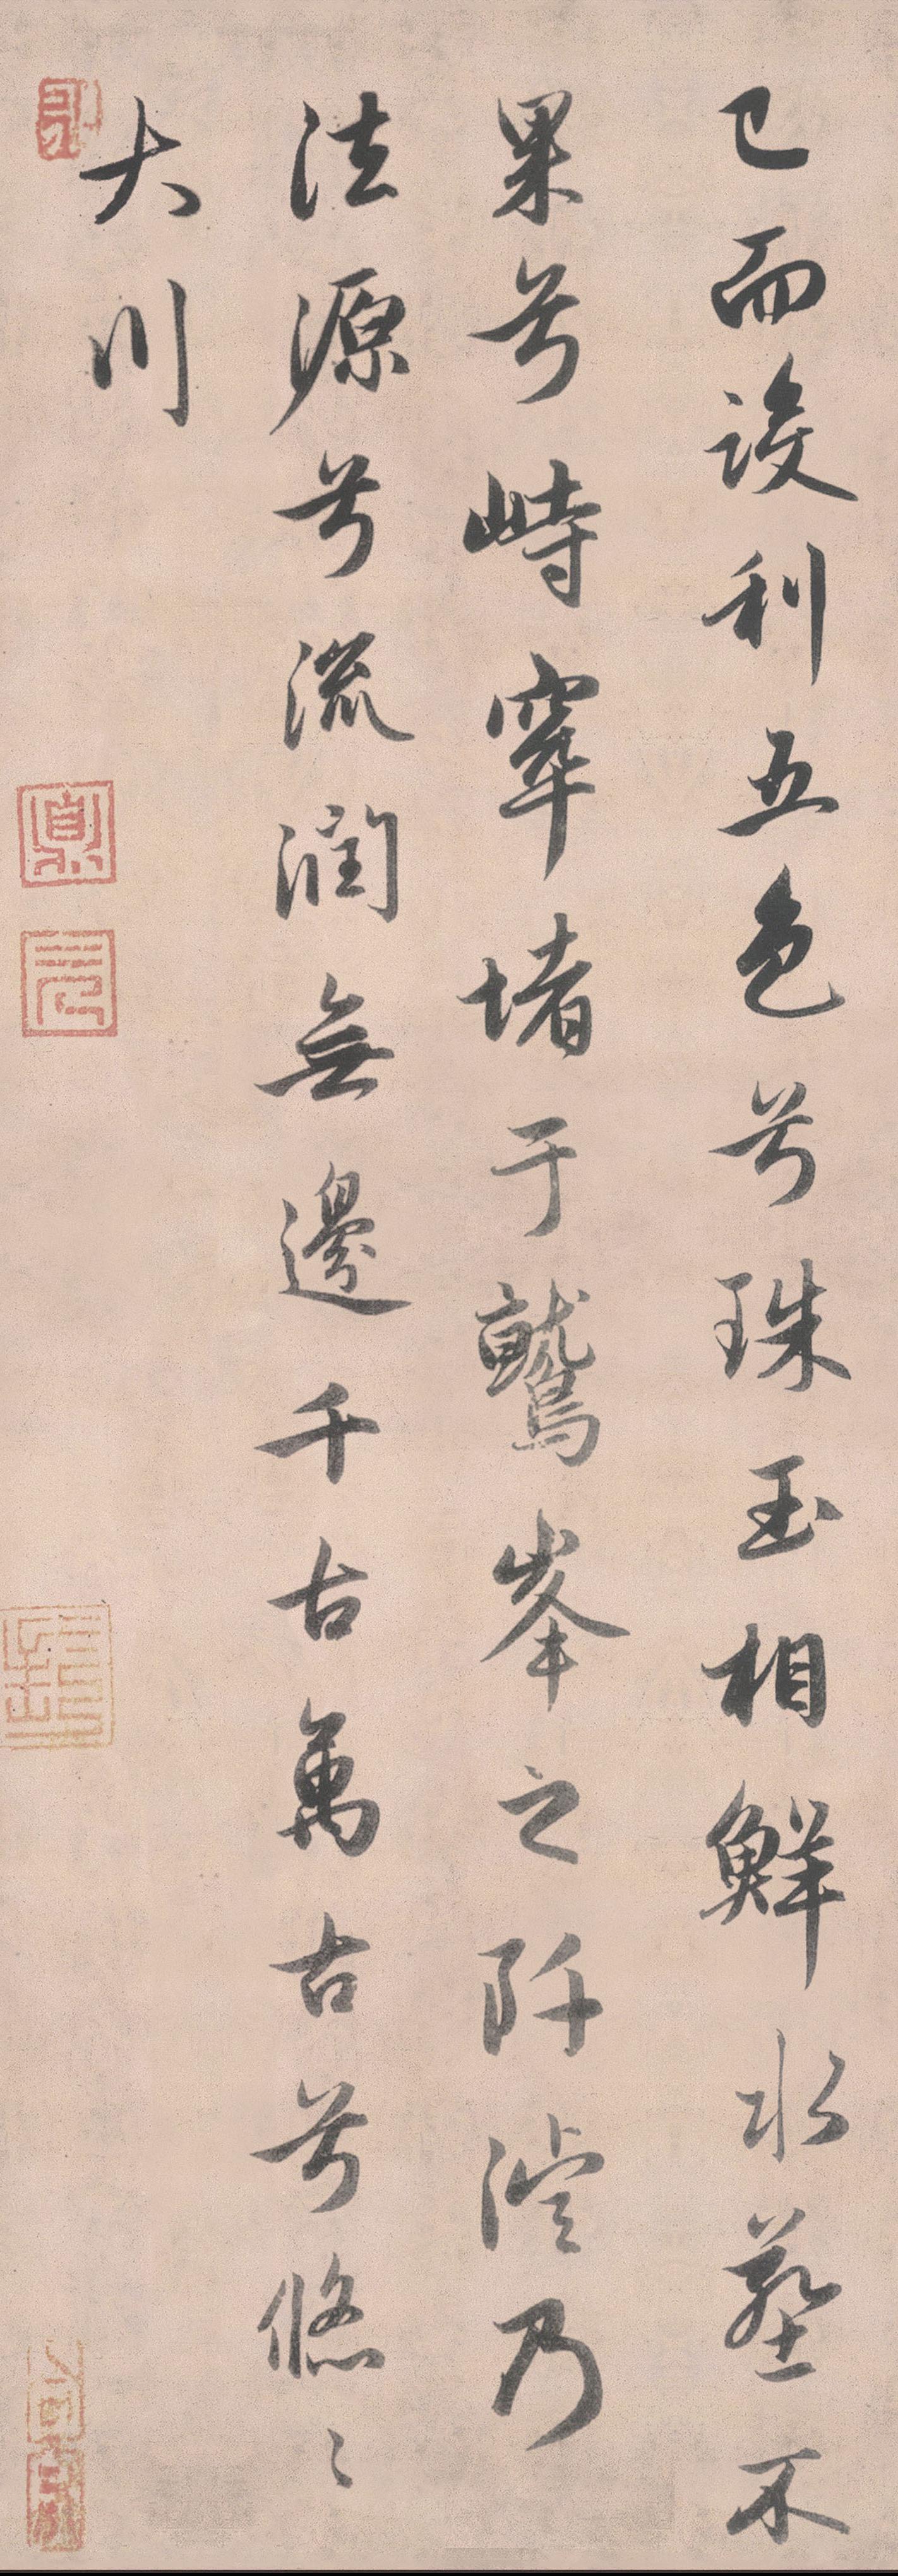 已而設利五色兮珠玉相鮮水塟不
果兮峙窣堵于鷲峯之阡濬乃
法源兮流潤無邊千古萬古兮悠〻
大川